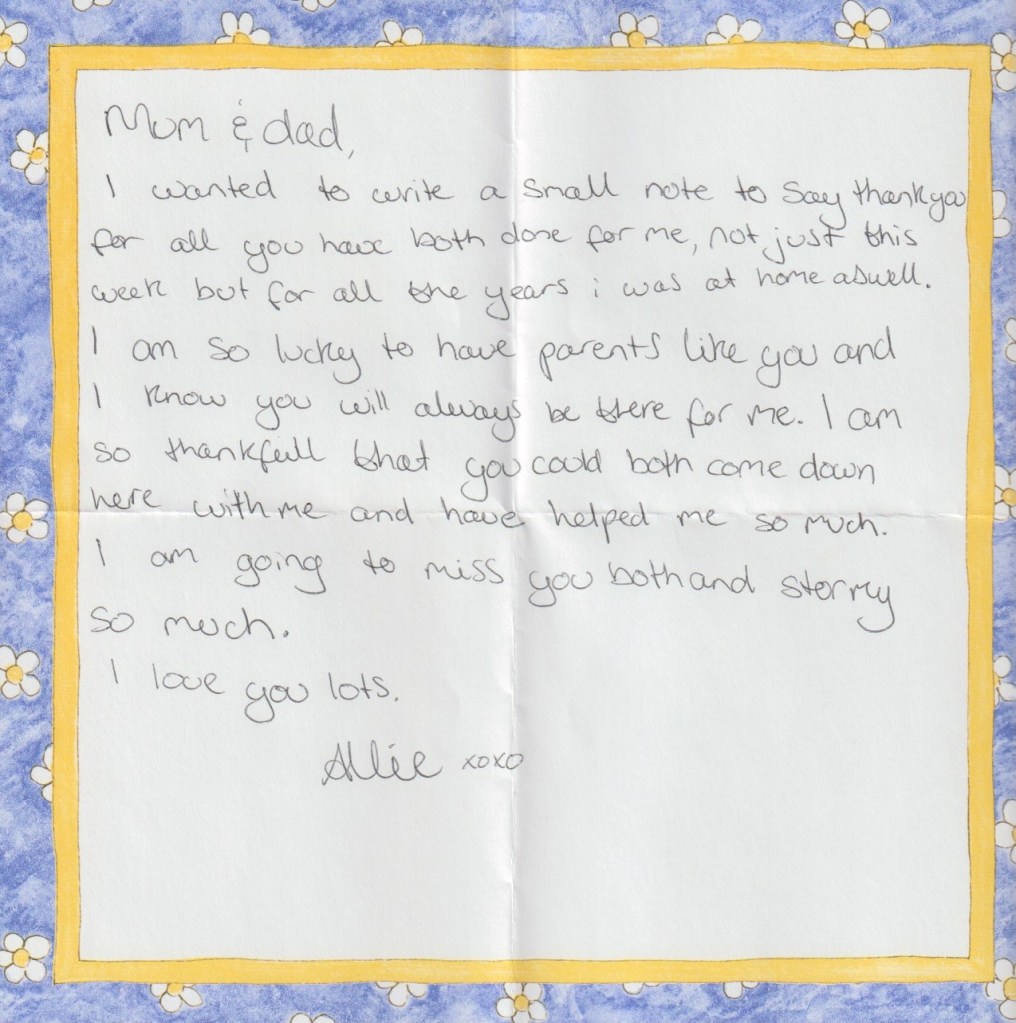 Mum & dad,
I wanted to write a small note to say thankyou
for all you have both done for me, not just this
week but for all the years i was at home aswell.
I am so lucky to have parents like you and
I know you will always be there for me. I am
so thankfull that you could both come down
here with me and have helped me so much.
I am going to miss you both and stormy
so much.
I love you lots.
Allie xoxo